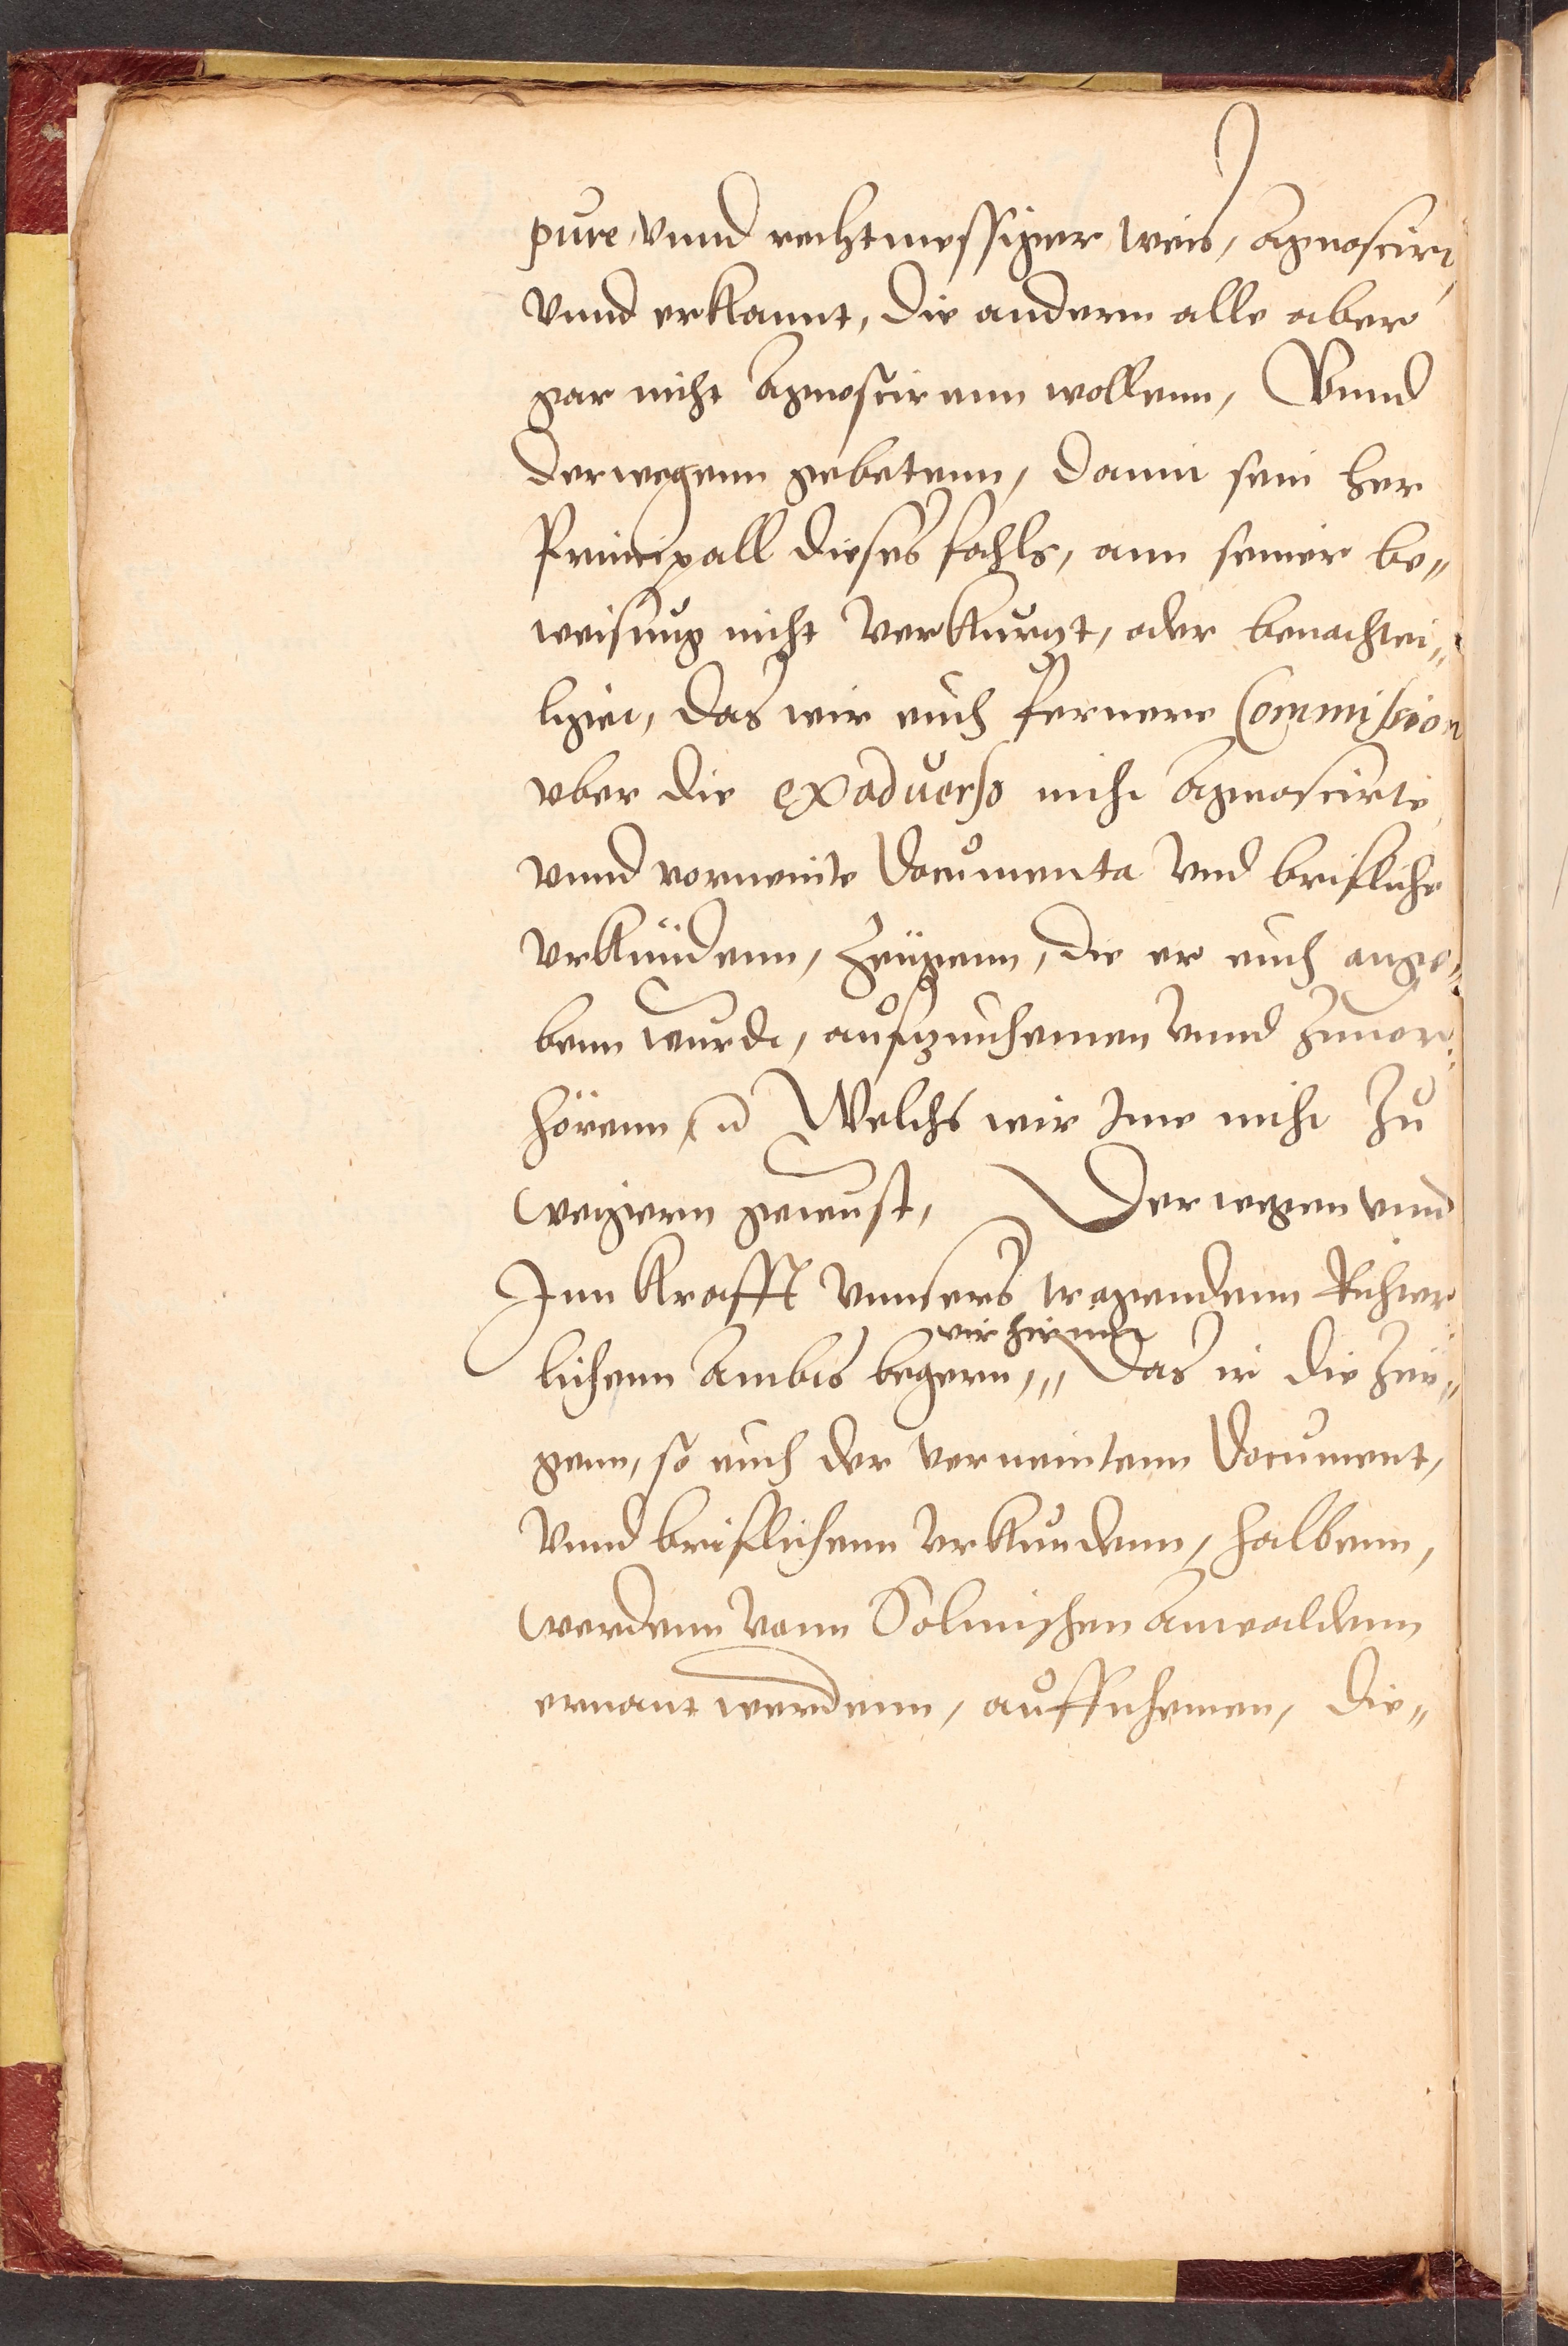 pure, vnnd rechtmessiger weis, Agnoscirt,
vnnd erkannt, die anderm alle aber
gar nicht Agnoscirenn wollenn, Vnnd
derwegenn gebetenn, damit sein her
Principall dieses fahls, ann seiner be„
weisung nicht verkurgt, oder benachtei„
ligtt, das wir euch fernere Commission
vber die ex aduerso nicht Agnoscirte,
vnnd vorneinte Documenta vnd brifliche
vrkündenn, Zeügenn, die er euch ange„
benn wurde, aufzunhemen vnnd Zuuor„
hörenn, Welchs wir Ime nicht Zu
weigern gewust, Derwegen vnnd
Inn Krafft vnnsers tragendenn Richter„
wir hirmit
lichenn Ambts begern,,, Das ir die Zeü„
genn, so euch der verneintenn Document,
vnnd briflichenn vrkundenn, halbenn,
werdenn vonn Solmischen Anwaldenn
ernant werdenn, auffnhemen, die„